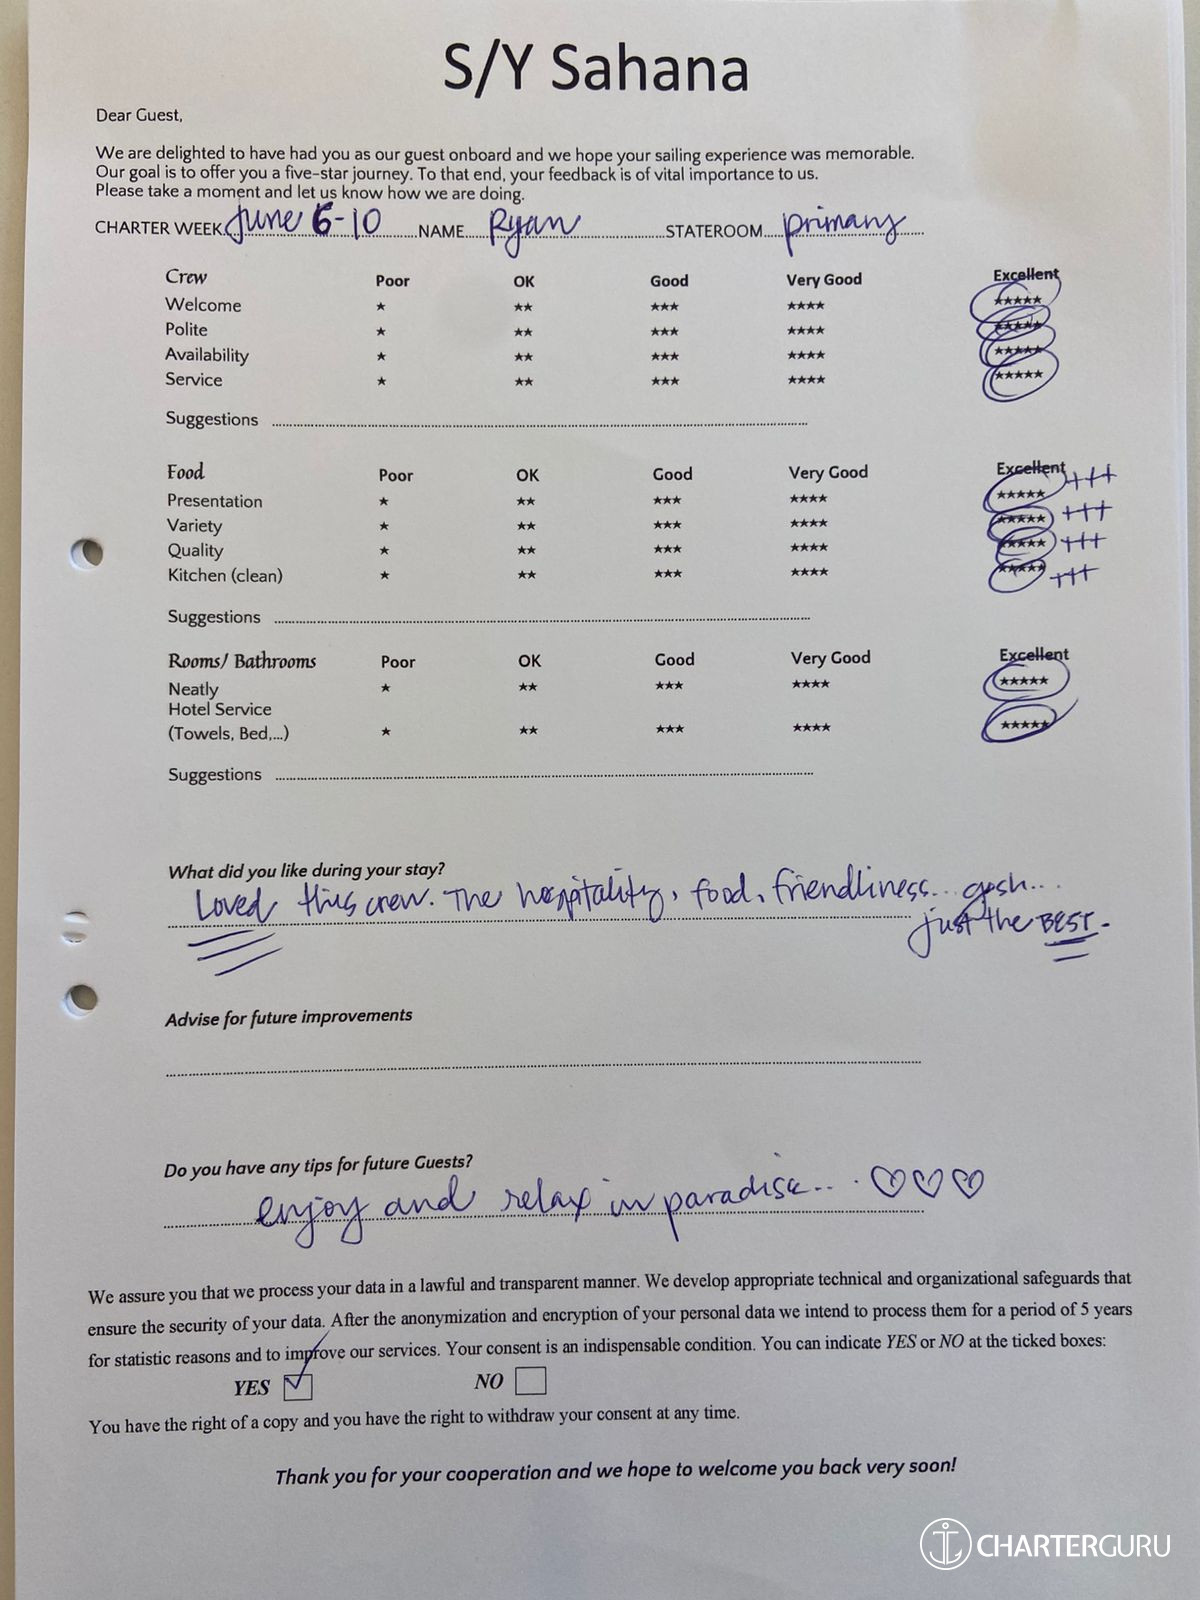 S/Y Sahana
Dear Guest,
We are delighted to have had you as our guest onboard and we hope your sailing experience was memorable.
Our goal is to offer you a five-star journey. To that end, your feedback is of vital importance to us.
Please take a moment and let us know how we are doing.
CHARTER WEEK June 6-10 NAME Ryan STATEROOM primary
Crew Poor OK Good Very Good Excellent
Welcome ★ ★★ ★★★ ★★★★ ★★★★★
Polite ★ ★★ ★★★ ★★★★ ★★★★★
Availability ★ ★★ ★★★ ★★★★ ★★★★★
Service ★ ★★ ★★★ ★★★★ ★★★★★
Suggestions
Food Poor OK Good Very Good Excellent
Presentation ★ ★★ ★★★ ★★★★ ★★★★★ +++
Variety ★ ★★ ★★★ ★★★★ ★★★★★ +++
Quality ★ ★★ ★★★ ★★★★ ★★★★★ +++
Kitchen (clean) ★ ★★ ★★★ ★★★★ ★★★★★ +++
Suggestions
Rooms/ Bathrooms Poor OK Good Very Good Excellent
Neatly ★ ★★ ★★★ ★★★★ ★★★★★
Hotel Service
(Towels, Bed,...) ★ ★★ ★★★ ★★★★ ★★★★★
Suggestions
What did you like during your stay?
Loved this crew. The hospitality, food, friendliness... gosh...
just the BEST.
Advise for future improvements
Do you have any tips for future Guests?
enjoy and relax in paradise... ♡♡♡
We assure you that we process your data in a lawful and transparent manner. We develop appropriate technical and organizational safeguards that
ensure the security of your data. After the anonymization and encryption of your personal data we intend to process them for a period of 5 years
for statistic reasons and to improve our services. Your consent is an indispensable condition. You can indicate YES or NO at the ticked boxes:
YES ☑ NO ☐
You have the right of a copy and you have the right to withdraw your consent at any time.
Thank you for your cooperation and we hope to welcome you back very soon!
CHARTERGURU